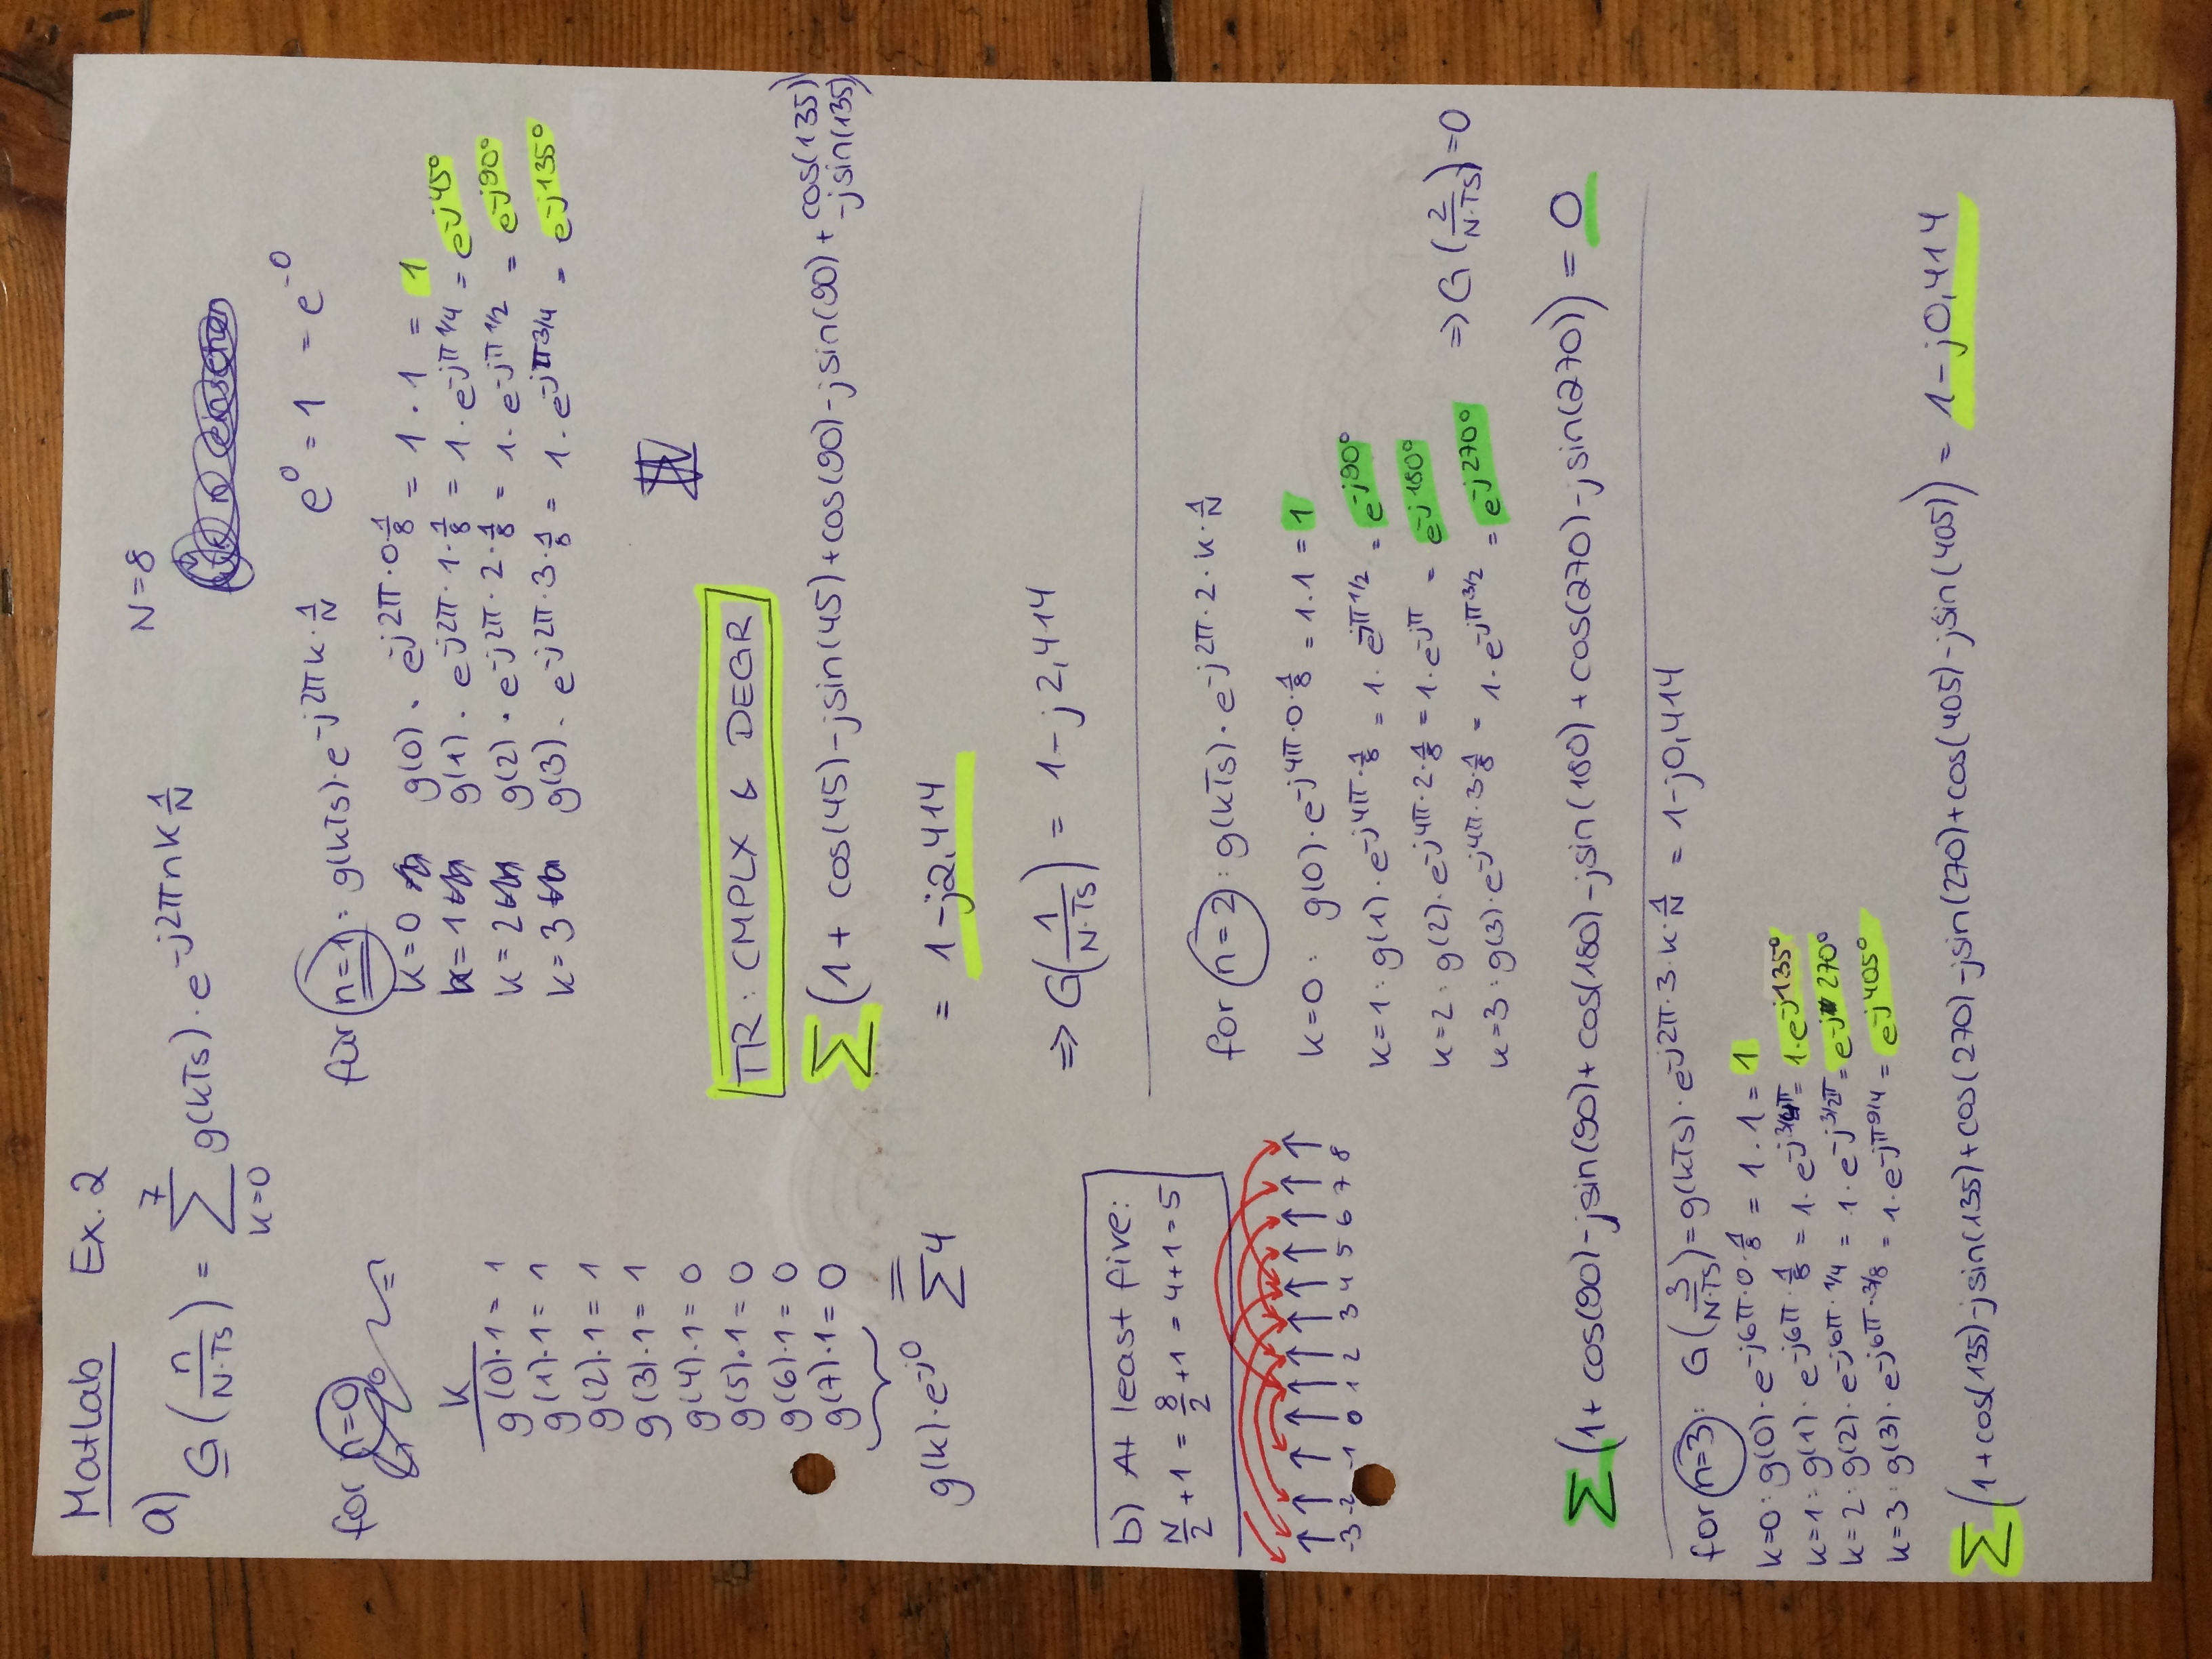 Matlab Ex. 2
a) G(n/(N·Ts)) = Σ_{k=0}^{7} g(kTs)·e^{-j2πnk 1/N}
N=8
for n=0
k
g(0)·1 = 1
g(1)·1 = 1
g(2)·1 = 1
g(3)·1 = 1
g(4)·1 = 0
g(5)·1 = 0
g(6)·1 = 0
g(7)·1 = 0
g(k)·e^{-j0} Σ4
für n=1: g(kTs)·e^{-j2πk·1/N} e^0 = 1 = e^{-0}
k=0 g(0)·e^{-j2π·0·1/8} = 1·1 = 1
k=1 g(1)·e^{-j2π·1·1/8} = 1·e^{-jπ 1/4} = e^{-j45°}
k=2 g(2)·e^{-j2π·2·1/8} = 1·e^{-jπ 1/2} = e^{-j90°}
k=3 g(3)·e^{-j2π·3·1/8} = 1·e^{-jπ 3/4} = e^{-j135°}
TR: CMPLX & DEGR
Σ(1 + cos(45)-jsin(45)+cos(90)-jsin(90)+cos(135)
-jsin(135))
= 1-j2,414
⇒ G(1/(N·Ts)) = 1-j2,414
b) At least five:
N/2 +1 = 8/2 +1 = 4+1 = 5
-3 -2 -1 0 1 2 3 4 5 6 7 8
for n=2: g(kTs)·e^{-j2π·2·k·1/N}
k=0: g(0)·e^{-j4π·0·1/8} = 1·1 = 1
k=1: g(1)·e^{-j4π·1/8} = 1·e^{-jπ 1/2} = e^{-j90°}
k=2: g(2)·e^{-j4π·2·1/8} = 1·e^{-jπ} = e^{-j180°}
k=3: g(3)·e^{-j4π·3·1/8} = 1·e^{-jπ 3/2} = e^{-j270°}
⇒ G(2/(N·Ts)) = 0
Σ(1+ cos(90)-jsin(90)+ cos(180)-jsin(180) + cos(270)-jsin(270)) = 0
for n=3: G(3/(N·Ts)) = g(kTs)·e^{-j2π·3·k·1/N} = 1-j0,414
k=0: g(0)·e^{-j6π·0·1/8} = 1·1 = 1
k=1: g(1)·e^{-j6π·1/8} = 1·e^{-j3/4π} = 1·e^{-j135°}
k=2: g(2)·e^{-j6π·1/4} = 1·e^{-j3/2π} = e^{-j270°}
k=3: g(3)·e^{-j6π·3/8} = 1·e^{-jπ9/4} = e^{-j405°}
Σ(1+cos(135)-jsin(135)+cos(270)-jsin(270)+cos(405)-jsin(405)) = 1-j0,414